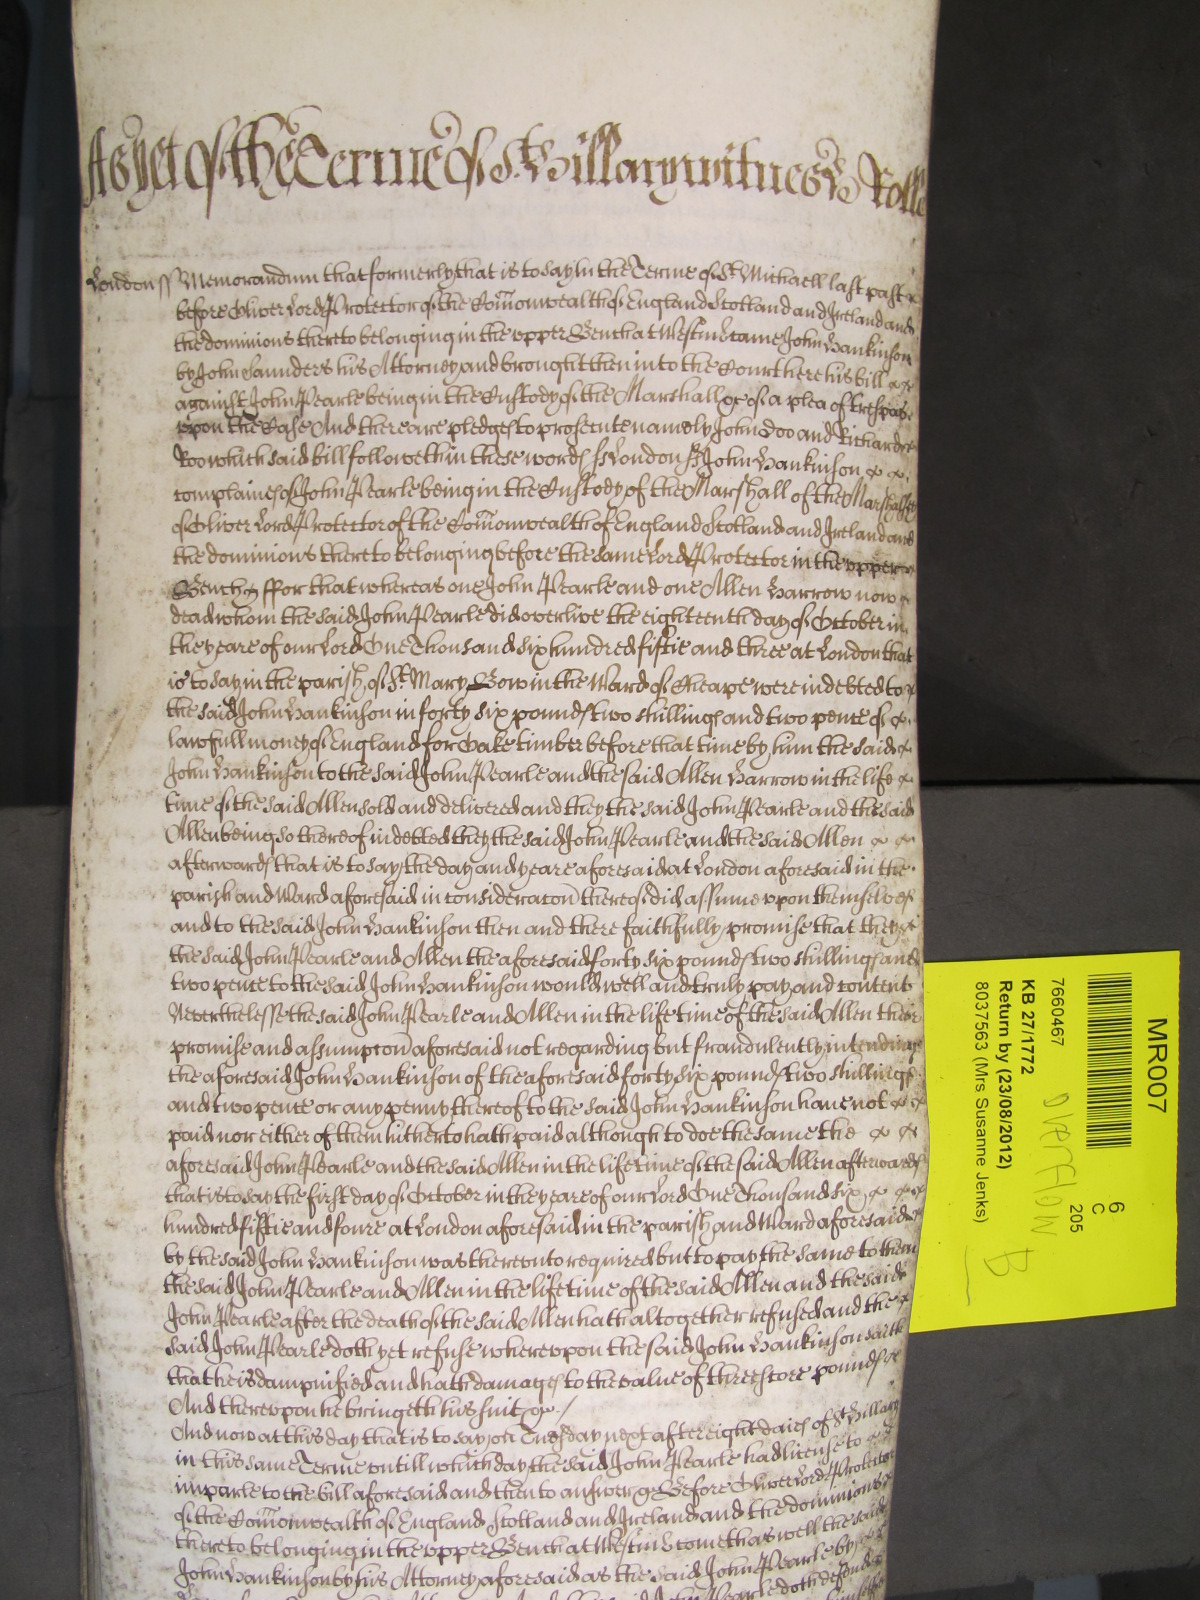 As yet of the Terme of St. Hillary witnes H Rolle
London ss Memorandum that formerly that is to say In the Terme of St. Michaell last past
before Oliver Lord Protector of the Comonwealth of England Scotland and Ireland and
the dominions thereto belonging in the upper Bench at Westmr. came John Hankinson
by John Saunders his Attorney and brought then into the Court here his bill
against John Pearle being in the Custody of the Marshall &c of a plea of trespas
upon the Case And there are pledges to prosecute namely John Doo and Richard
Roo which said bill followeth in these words ss London ss John Hankinson
complaines of John Pearle being in the Custody of the Marshall of the Marshalsey
of Oliver Lord Protector of the Comonwealth of England Scotland and Ireland and
the dominions thereto belonging before the same Lord Protector in the upper
Bench ffor that whereas one John Pearle and one Allen Harrow now
dead whom the said John Pearle did overlive the eighteenth day of October in
the yeare of our Lord One Thousand six hundred fiftie and three at London that
is to say in the parish of St. Mary Bow in the Ward of Cheape were indebted to
the said John Hankinson in forty six pounds two shillings and two pence of
lawfull money of England for Oake timber before that time by him the said
John Hankinson to the said John Pearle and the said Allen Harrow in the life
time of the said Allen sold and delivered and they the said John Pearle and the said
Allen being so thereof indebted they the said John Pearle and the said Allen
afterwards that is to say the day and yeare aforesaid at London aforesaid in the
parish and Ward aforesaid in consideracon thereof did assume upon themselves
and to the said John Hankinson then and there faithfully promise that they
the said John Pearle and Allen the aforesaid forty six pounds two shillings and
two pence to the said John Hankinson would well and truly pay and content
Neverthelesse the said John Pearle and Allen in the life time of the said Allen their
promise and assumpcon aforesaid not regarding but fraudulently intending
the aforesaid John Hankinson of the aforesaid forty six pounds two shillings
and two pence or any penny thereof to the said John Hankinson have not
paid nor either of them hitherto hath paid although to doe the same the
aforesaid John Pearle and the said Allen in the life time of the said Allen afterwards
that is to say the first day of October in the yeare of our Lord One Thousand six
hundred fiftie and foure at London aforesaid in the parish and Ward aforesaid
by the said John Hankinson was thereunto required but to pay the same to them
the said John Pearle and Allen in the life time of the said Allen and the said
John Pearle after the death of the said Allen hath altogether refused and the
said John Pearle doth yet refuse whereupon the said John Hankinson saith
that he is dampnified and hath damages to the value of threescore pounds
And thereupon he bringeth his suit &c
And now at this day that is to say on Tuesday next after eight daies of St. Hillary
in this same Terme untill which day the said John Pearle had license to
imparle to the bill aforesaid and then to answer &c Before Oliver Lord Protector
of the Comonwealth of England Scotland and Ireland and the dominions
thereto belonging in the upper Bench at Westmr. cometh as well the said
John Hankinson by his Attorney aforesaid as the said John Pearle by
said John Pearle doth defend
MR007
6
C
205
7660467
KB 27/1772
Return by (23/08/2012)
8037563 (Mrs Susanne Jenks)
OVERFLOW
B